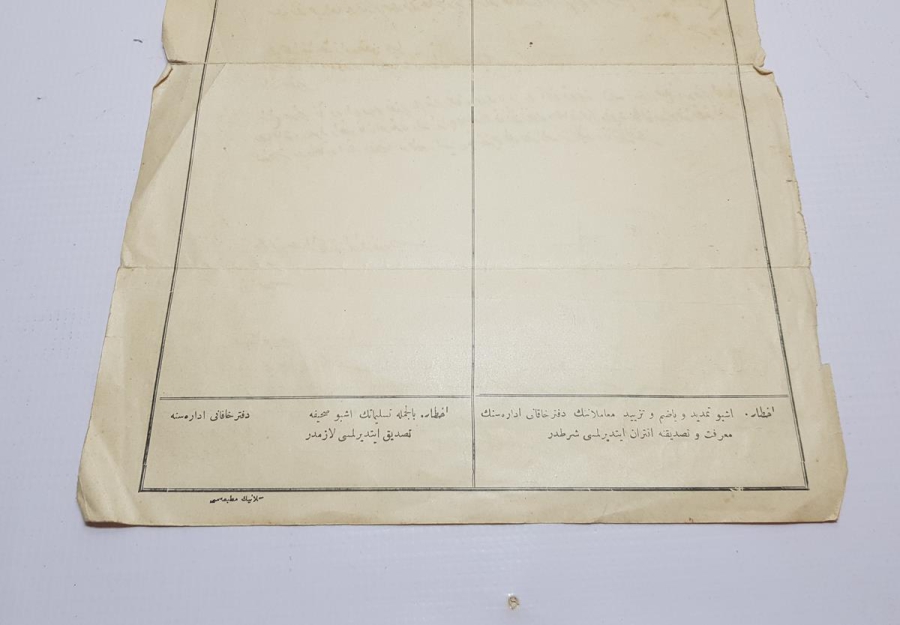 اخطار. اشبو تمدید و یاضم و تزیید معاملاتنك دفترخاقانی اداره‌سنك
معرفت و تصدیقنه اقتران ایتدیرلمسی شرطدر
اخطار. بالجمله تسلیماتك اشبو صحیفه دفترخاقانی اداره‌سنه
تصدیق ایتدیرلمسی لازمدر
سلانیك مطبعه‌سی